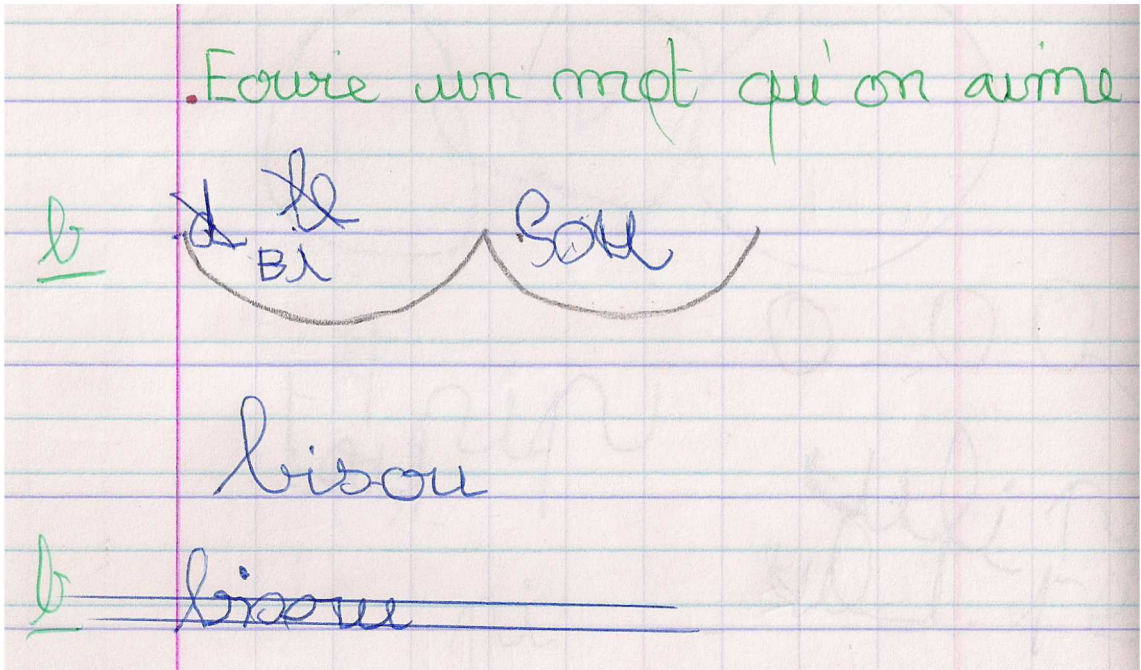 .Ecrire un mot qu'on aime
b Bi sou
bisou
b bisou